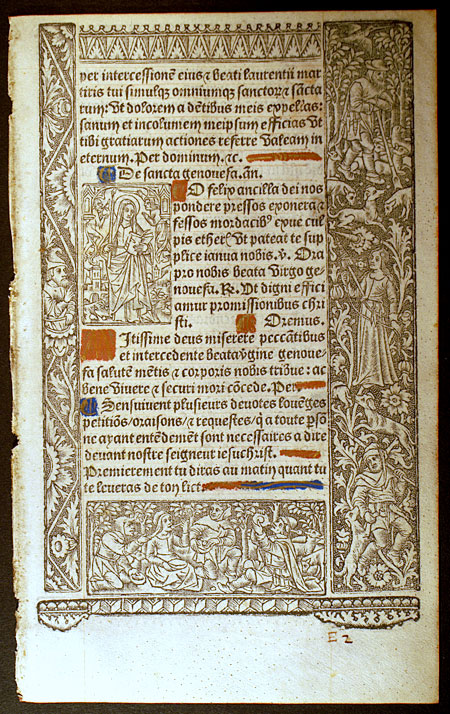 per intercessionē eius ⁊ beati laurentii mar
tiris tui simulqȝ omniumqȝ sanctoꝝ ⁊ sācta
rum: Vt dolorem a dētibus meis expellas:
sanum et incolumem meipsum efficias Vt
tibi gratiarum actiones referre Valeam in
eternum. Per dominum. ⁊c.
De sancta genouefa. añ.
O felix ancilla dei nos
pondere pressos exonera ⁊
fessos mordacib⁹ exue cul
pis Vt pateat te sup
plice ianua nobis. ℣. Ora
pro nobis beata Virgo ge
nouefa. ℟. Vt digni effici
amur promissionibus chri
sti. Oremus.
Itissime deus miserere peccātibus
et intercedente beata Vgine genoue
fa salutē mētis ⁊ corporis nobis tribue: ac
bene Viuere ⁊ securi mori cōcede. Per
Sensuiuent plusieurs deuotes louēges
petitiōs/oraisons/⁊ requestes/q̄ a toute psōn
ne ayant entēdemēt sont necessaires a dire
deuant nostre seigneur iesuchrist.
Premierement tu diras au matin quant tu
te leueras de ton lict:
E 2